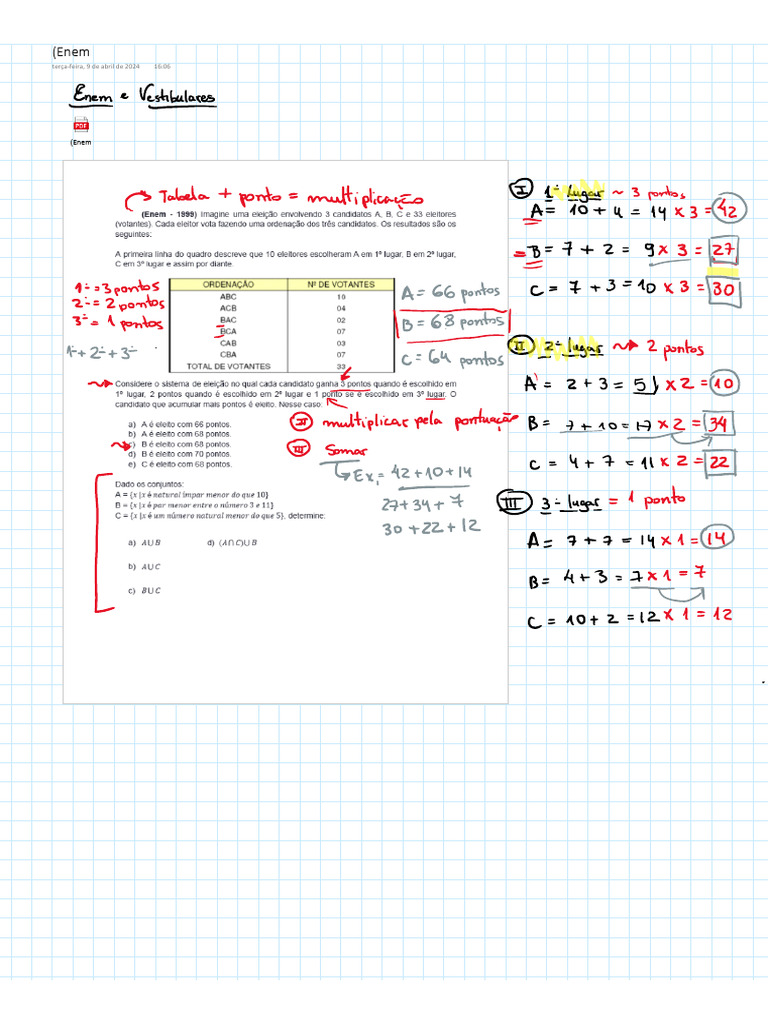 (Enem
terça-feira, 9 de abril de 2024 16:06
Enem e Vestibulares
PDF
(Enem
Tabela + ponto = multiplicação
(Enem - 1999) Imagine uma eleição envolvendo 3 candidatos A, B, C e 33 eleitores
(votantes). Cada eleitor vota fazendo uma ordenação dos três candidatos. Os resultados são os
seguintes:
A primeira linha do quadro descreve que 10 eleitores escolheram A em 1º lugar, B em 2º lugar,
C em 3º lugar e assim por diante.
1º = 3 pontos
2º = 2 pontos
3º = 1 pontos
1º + 2º + 3º
ORDENAÇÃO Nº DE VOTANTES
ABC 10
ACB 04
BAC 02
BCA 07
CAB 03
CBA 07
TOTAL DE VOTANTES 33
A = 66 pontos
B = 68 pontos
C = 64 pontos
Considere o sistema de eleição no qual cada candidato ganha 3 pontos quando é escolhido em
1º lugar, 2 pontos quando é escolhido em 2º lugar e 1 ponto se e escolhido em 3º lugar. O
candidato que acumular mais pontos é eleito. Nesse caso.
II multiplicar pela pontuação
a) A é eleito com 66 pontos.
b) A é eleito com 68 pontos.
c) B é eleito com 68 pontos.
d) B é eleito com 70 pontos.
e) C é eleito com 68 pontos.
III Somar
Ex: 42 + 10 + 14
27 + 34 + 7
30 + 22 + 12
Dado os conjuntos:
A = {x | x é natural ímpar menor do que 10}
B = {x | x é par menor entre o número 3 e 11}
C = {x | x é um número natural menor do que 5}, determine:
a) A∪B d) (A∩C)∪B
b) A∪C
c) B∪C
I 1º lugar ~ 3 pontos
A = 10 + 4 = 14 x 3 = 42
= B = 7 + 2 = 9 x 3 = 27
C = 7 + 3 = 10 x 3 = 30
II 2º lugar 2 pontos
A = 2 + 3 = 5 x 2 = 10
B = 7 + 10 = 17 x 2 = 34
C = 4 + 7 = 11 x 2 = 22
III 3º lugar = 1 ponto
A = 7 + 7 = 14 x 1 = 14
B = 4 + 3 = 7 x 1 = 7
C = 10 + 2 = 12 x 1 = 12